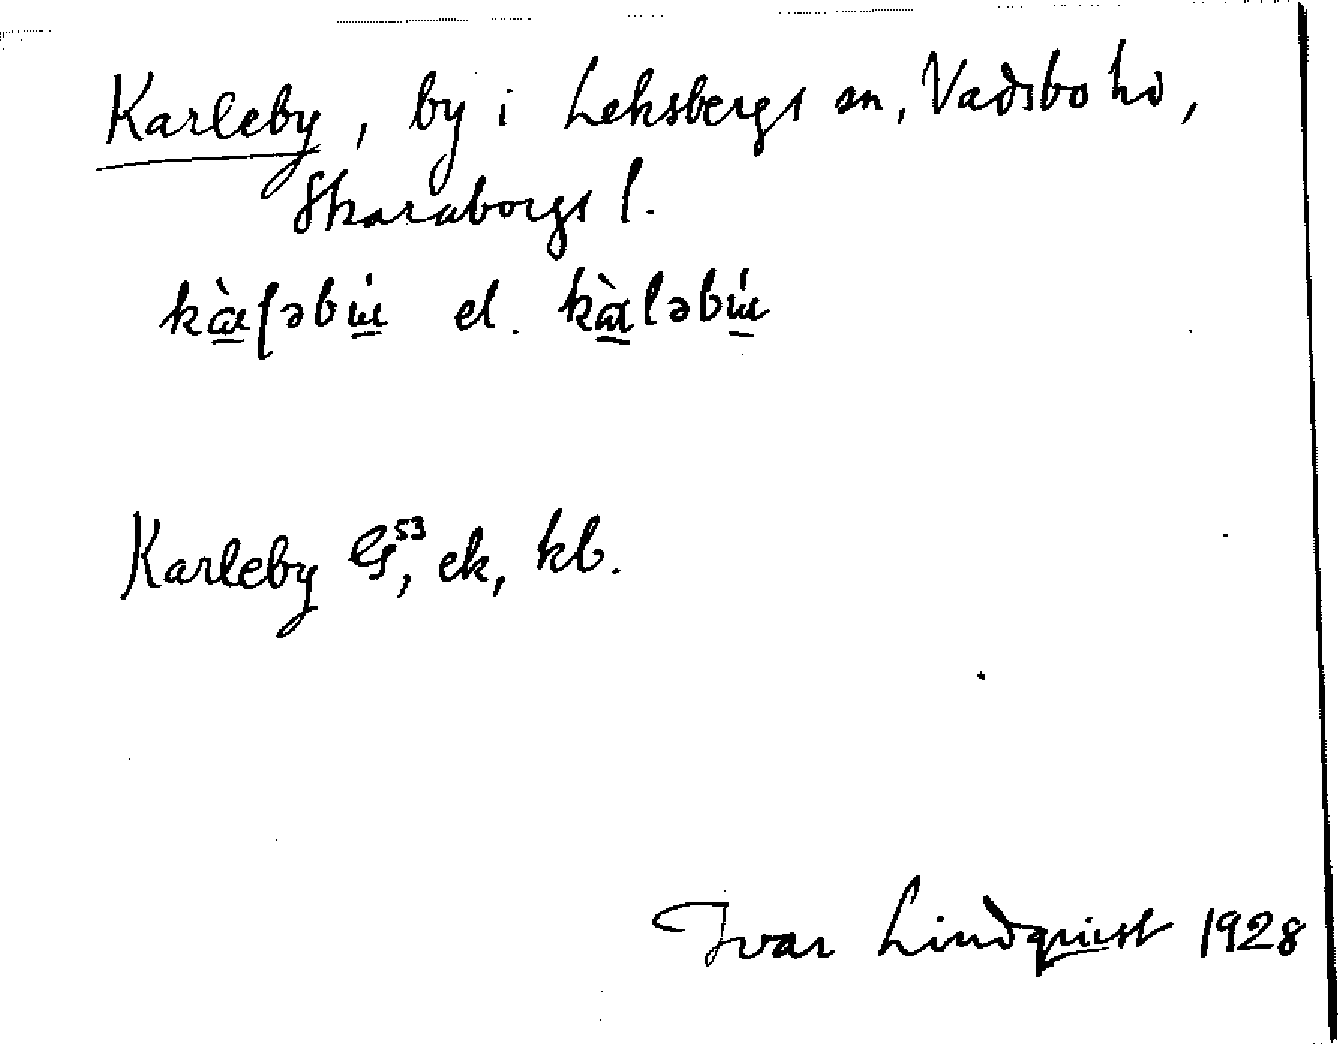 Karleby, by i Leksbergs sn, Vadsbo hd,
Skaraborgs l.
el.
Karleby G53, ek, kb.
Ivar Lindquist 1928